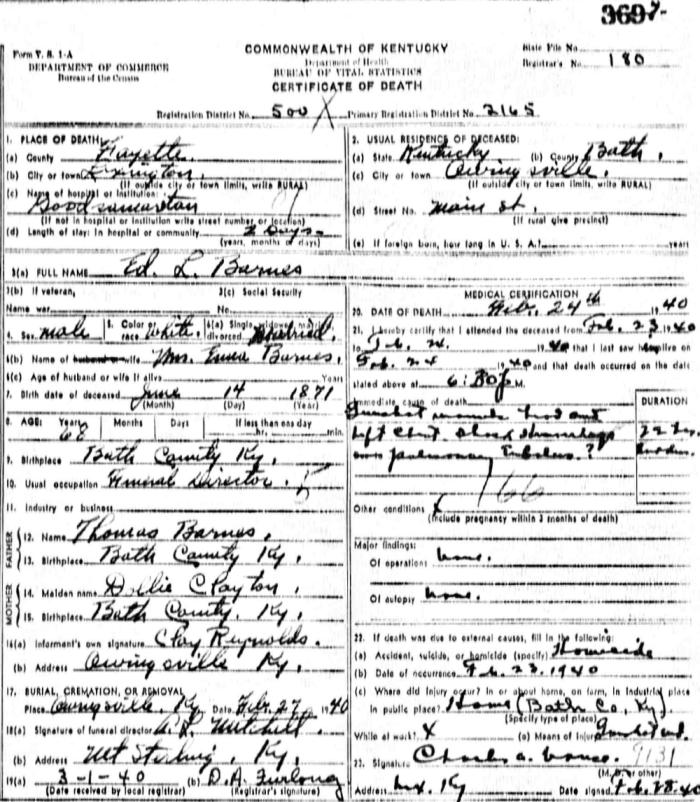 3697
Form V. S. 1-A
COMMONWEALTH OF KENTUCKY
State File No.
DEPARTMENT OF COMMERCE
Department of Health
Registrar's No. 180
Bureau of the Census
BUREAU OF VITAL STATISTICS
CERTIFICATE OF DEATH
Registration District No. 500 X Primary Registration District No. 2165
1. PLACE OF DEATH:
(a) County Fayette.
(b) City or town Lexington.
(If outside city or town limits, write RURAL)
(c) Name of hospital or institution:
Good samaritan
(If not in hospital or institution write street number, or location)
(d) Length of stay: In hospital or community 2 Days.
(years, months or days)
2. USUAL RESIDENCE OF DECEASED:
(a) State Kentucky (b) County Bath.
(c) City or town Owingsville.
(If outside city or town limits, write RURAL)
(d) Street No. main st.
(If rural give precinct)
(e) If foreign born, how long in U. S. A.? years
3(a) FULL NAME Ed. L. Barnes
3(b) If veteran, 3(c) Social Security
Name war No.
4. Sex male 5. Color or race White. 6(a) Single, widowed, married, divorced Married.
6(b) Name of husband or wife Mrs. Emma Barnes.
6(c) Age of husband or wife if alive Years
7. Birth date of deceased June 14 1871
(Month) (Day) (Year)
8. AGE: Years 68 Months Days If less than one day
hr. min.
9. Birthplace Bath County Ky.
10. Usual occupation Funeral Director. 5
11. Industry or business
FATHER
12. Name Thomas Barnes.
13. Birthplace Bath County Ky.
MOTHER
14. Maiden name Dollie Clayton
15. Birthplace Bath County. Ky.
16(a) Informant's own signature Clay Reynolds.
(b) Address Owingsville Ky.
17. BURIAL, CREMATION, OR REMOVAL
Place Owingsville. Ky Date Feb. 27, 1940
18(a) Signature of funeral director Mitchell.
(b) Address Mt Sterling. Ky.
19(a) 3-1-40 (b) D. A. Furlong
(Date received by local registrar) (Registrar's signature)
MEDICAL CERTIFICATION
20. DATE OF DEATH Feb. 24th 1940
21. I hereby certify that I attended the deceased from Feb. 23, 1940
to Feb. 24. 1940 that I last saw h alive on
Feb. 24 1940 and that death occurred on the date
stated above at 6:30 p M.
Immediate cause of death
DURATION
Gunshot wounds
left Chest. Shock Hemorrhage
pulmonary Embolus.?
166
Other conditions X
(Include pregnancy within 3 months of death)
Major findings:
Of operations none.
Of autopsy none.
22. If death was due to external causes, fill in the following:
(a) Accident, suicide, or homicide (specify) Homicide
(b) Date of occurrence Feb. 23. 1940
(c) Where did injury occur? In or about home, on farm, in industrial place
in public place? Home (Bath Co, Ky.)
(Specify type of place)
While at work? X (e) Means of Injury Gunshot wd.
23. Signature Charles A. 9131
(M. D. or other)
Address Lex. Ky Date signed Feb. 28.40